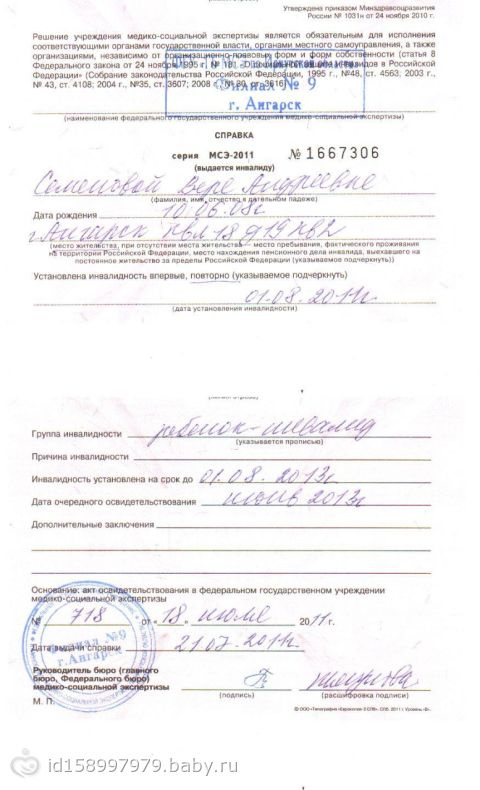 Утверждена приказом Минздравсоцразвития
России № 1031н от 24 ноября 2010 г.
Решение учреждения медико-социальной экспертизы является обязательным для исполнения
соответствующими органами государственной власти, органами местного самоуправления, а также
организациями, независимо от организационно-правовых форм и форм собственности (статья 8
Федерального закона от 24 ноября 1995 г. № 181 инвалидов в Российской
Федерации» (Собрание законодательства Российской Федерации, 1995 г., №48, ст. 4563; 2003 г.,
№ 43, ст. 4108; 2004 г., №35, ст. 3607; 2008 г., №30, ст. 3616)
Филиал № 9
г. Ангарск
(наименование федерального государственного учреждения медико-социальной экспертизы)
СПРАВКА
серия МСЭ-2011 № 1667306
(выдается инвалиду)
Семеновой Вере Андреевне
(фамилия, имя, отчество в дательном падеже)
Дата рождения 10.06.08г
г.Ангарск квл 18 д19 кв2
(место жительства, при отсутствии места жительства - место пребывания, фактического проживания
на территории Российской Федерации, место нахождения пенсионного дела инвалида, выехавшего на
постоянное жительство за пределы Российской Федерации (указываемое подчеркнуть))
Установлена инвалидность впервые, повторно (указываемое подчеркнуть)
01.08.2011г.
(дата установления инвалидности)
Группа инвалидности ребенок-инвалид
(указывается прописью)
Причина инвалидности
Инвалидность установлена на срок до 01.08.2013г.
Дата очередного освидетельствования июль 2013г
Дополнительные заключения
Основание: акт освидетельствования в федеральном государственном учреждении
медико-социальной экспертизы
№ 718 от "18" июля 2011 г.
Филиал №9
г.Ангарск
Дата выдачи справки 21.07.2011г.
Руководитель бюро (главного
бюро, Федерального бюро)
медико-социальной экспертизы
(подпись) (расшифровка подписи)
М. П.
id158997979.baby.ru